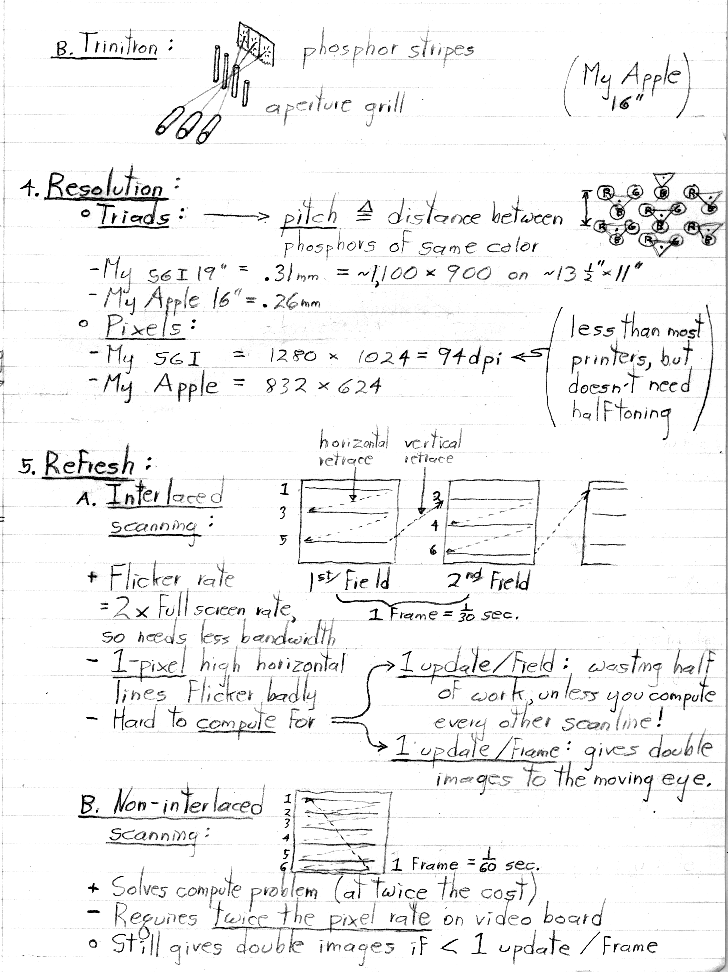 B. Trinitron:
phosphor stripes
aperture grill
(My Apple
16")
4. Resolution:
o Triads: → pitch ≜ distance between
phosphors of same color
R G R R G
B B B
R G R G R G
B B B
- My SGI 19" = .31mm = ~1,100 x 900 on ~13 1/2" x 11"
- My Apple 16" = .26mm
o Pixels:
- My SGI = 1280 x 1024 = 94dpi ←
- My Apple = 832 x 624
(less than most
printers, but
doesn't need
halftoning)
5. Refresh:
horizontal vertical
retrace retrace
A. Interlaced
scanning:
1
3
5
2
4
6
1st Field 2nd Field
1 Frame = 1/30 sec.
+ Flicker rate
= 2x Full screen rate,
so needs less bandwidth
- 1-pixel high horizontal
lines Flicker badly
- Hard to compute for
1 update/Field: wasting half
of work, unless you compute
every other scanline!
1 update/Frame: gives double
images to the moving eye.
B. Non-interlaced
scanning:
1
2
3
4
5
6
1 Frame = 1/60 sec.
+ Solves compute problem (at twice the cost)
- Requires twice the pixel rate on video board
o Still gives double images if < 1 update / Frame